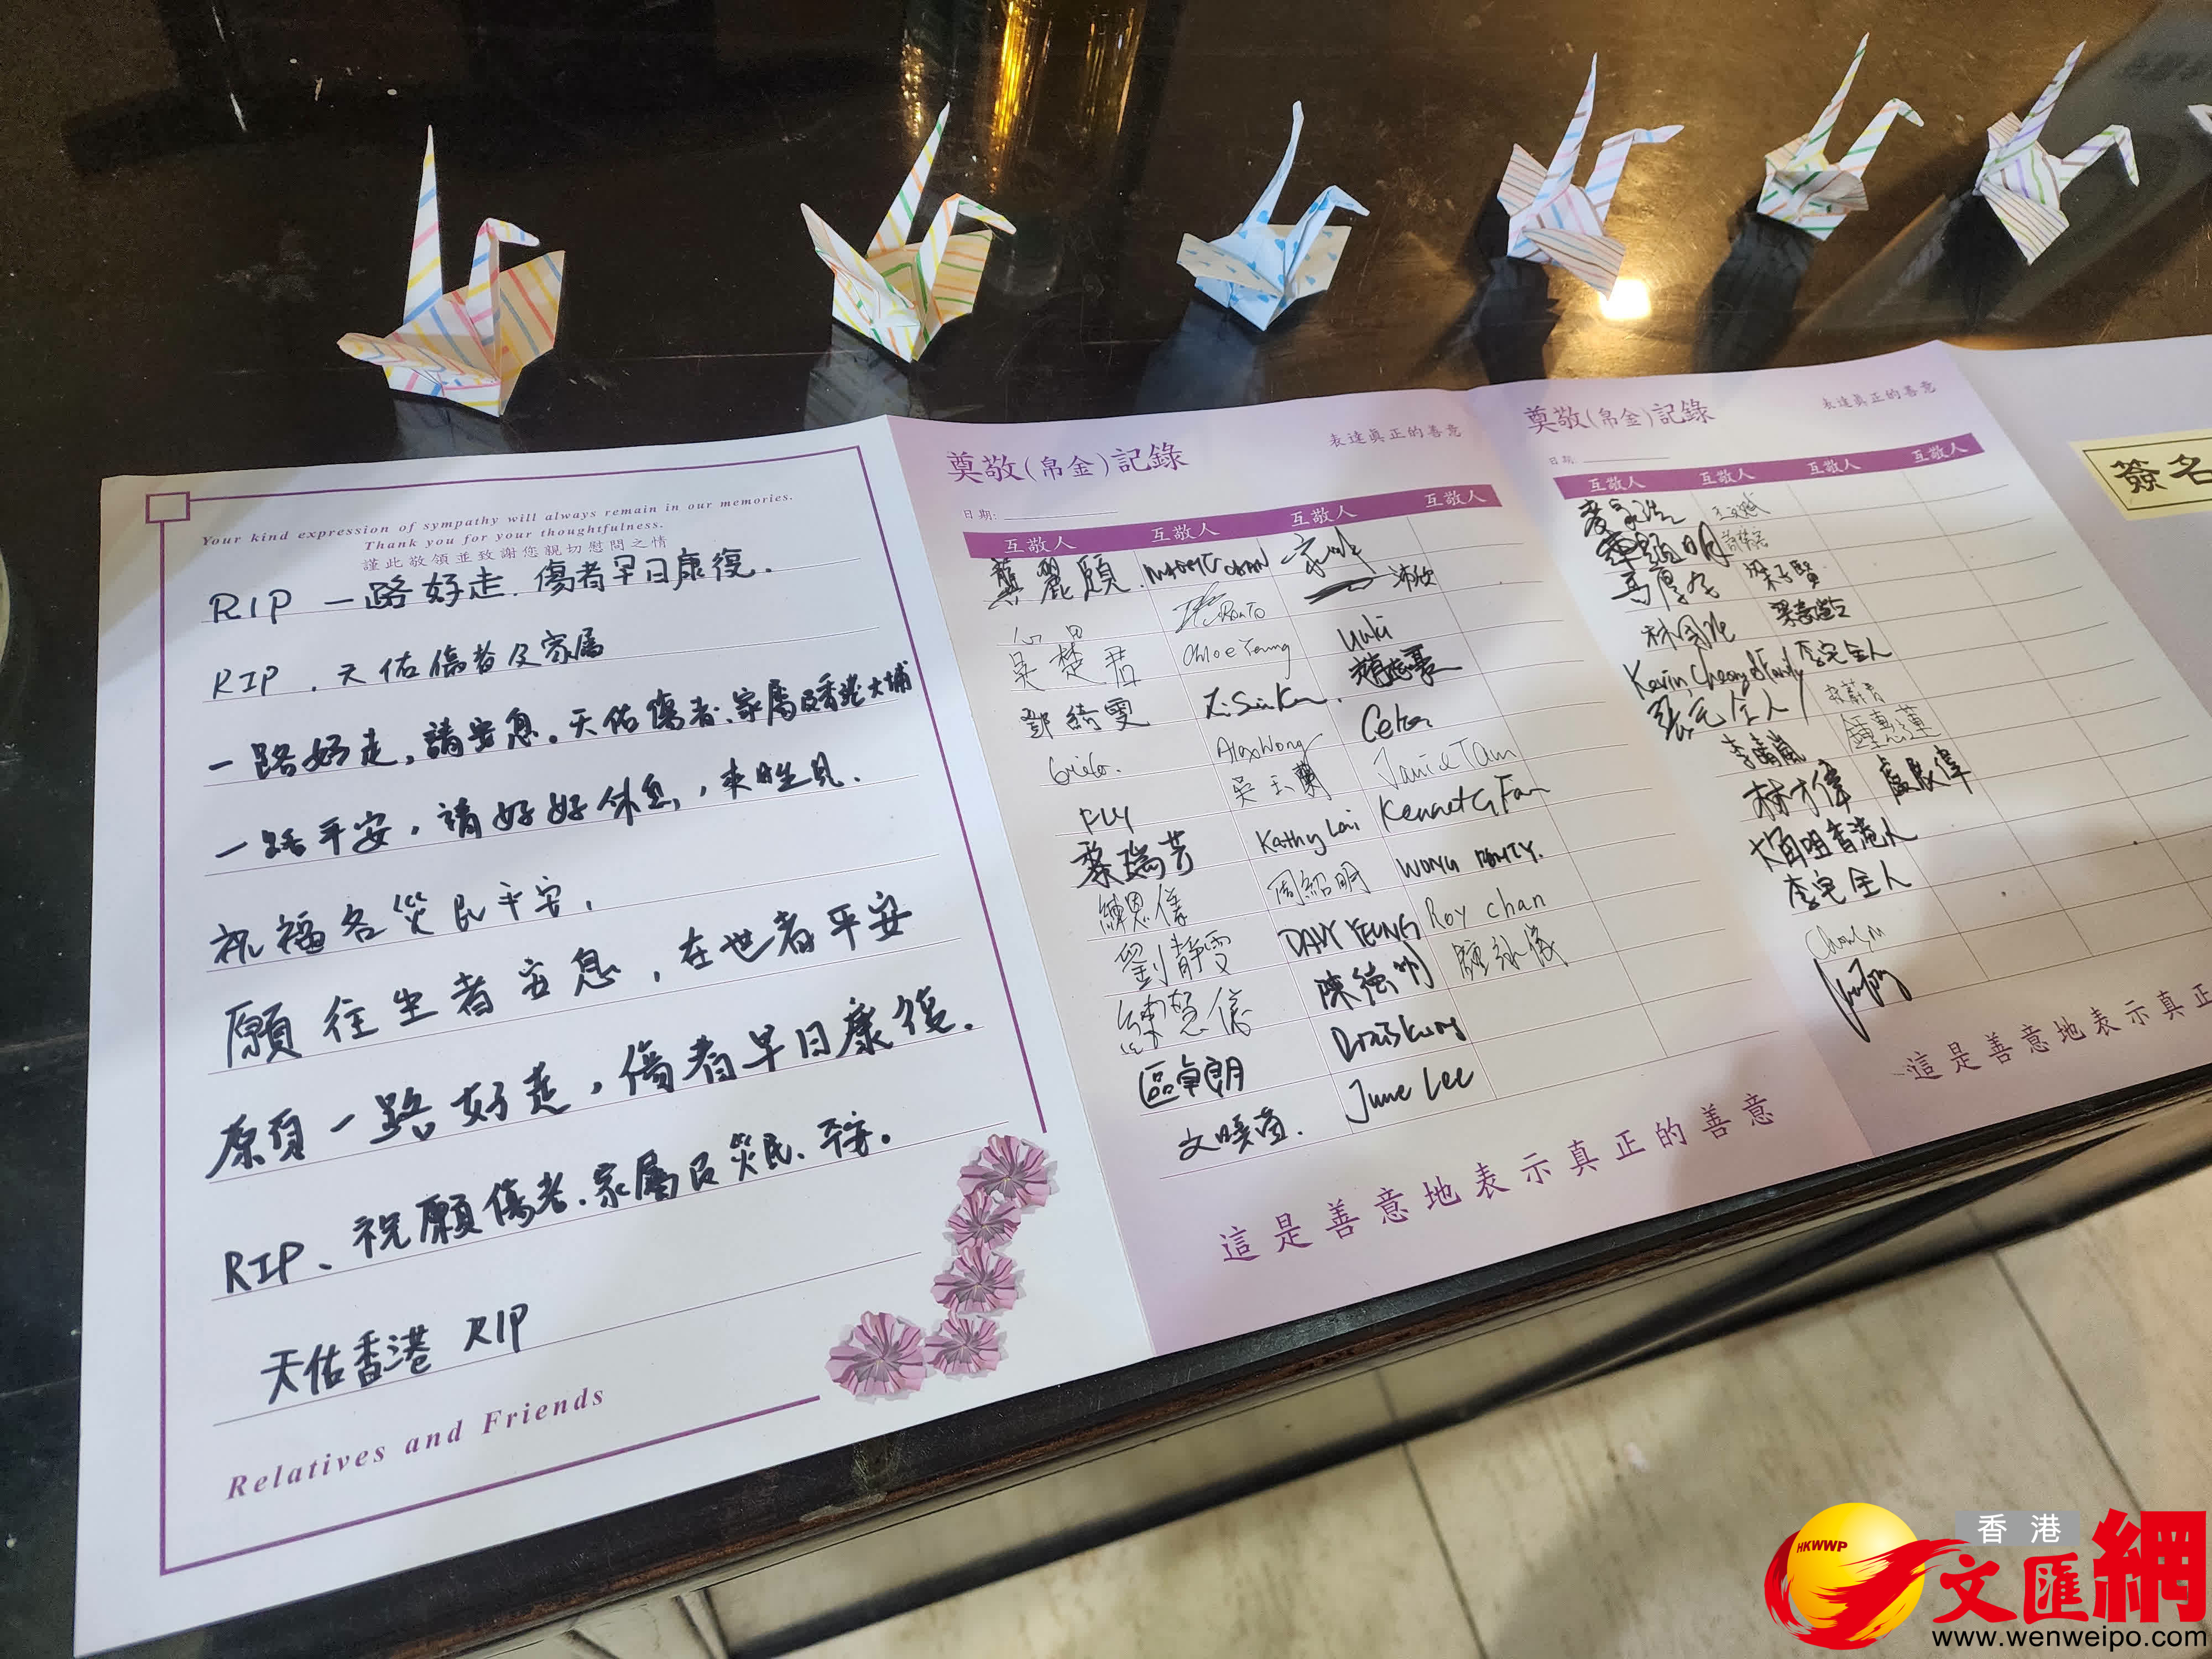 Your kind expression of sympathy will always remain in our memories.
Thank you for your thoughtfulness.
謹此敬領並致謝您親切慰問之情
RIP 一路好走. 傷者早日康復.
RIP . 天佑傷者及家屬
一路好走, 請安息。天佑傷者.家屬及香港大埔
一路平安, 請好好休息, 來生見.
祝福各災民平安,
願往生者安息, 在世者平安
願一路好走, 傷者早日康復.
RIP、祝願傷者.家屬 災民. 平安。
天佑香港 RIP
Relatives and Friends
奠敬(帛金)記錄
表達真正的善意
日期:
互敬人 互敬人 互敬人 互敬人
龔麗頤.
吳楚君 Chloe Yeung Yuki
鄧綺雯
Alex Wong
FLY 吳玉蘭 Janie Tam
黎瑞芳 Kathy Lai Kenneth Fan
練恩儀 周紹明 WONG
劉靜雯 DAVY YEUNG Roy chan
練慧儀 陳德明 鍾詠儀
區卓朗 Doris Kung
文曉茵. June Lee
這是善意地表示真正的善意
奠敬(帛金)記錄
表達真正的善意
日期:
互敬人 互敬人 互敬人 互敬人
梁子賢
林國
Kevin Cheong & Family 李宅全人
張宅全人
李晴嵐 鍾惠蓮
林才偉 盧展偉
香港人
李宅全人
這是善意地表示真正
簽名
HKWWP
香港
文匯網
www.wenweipo.com